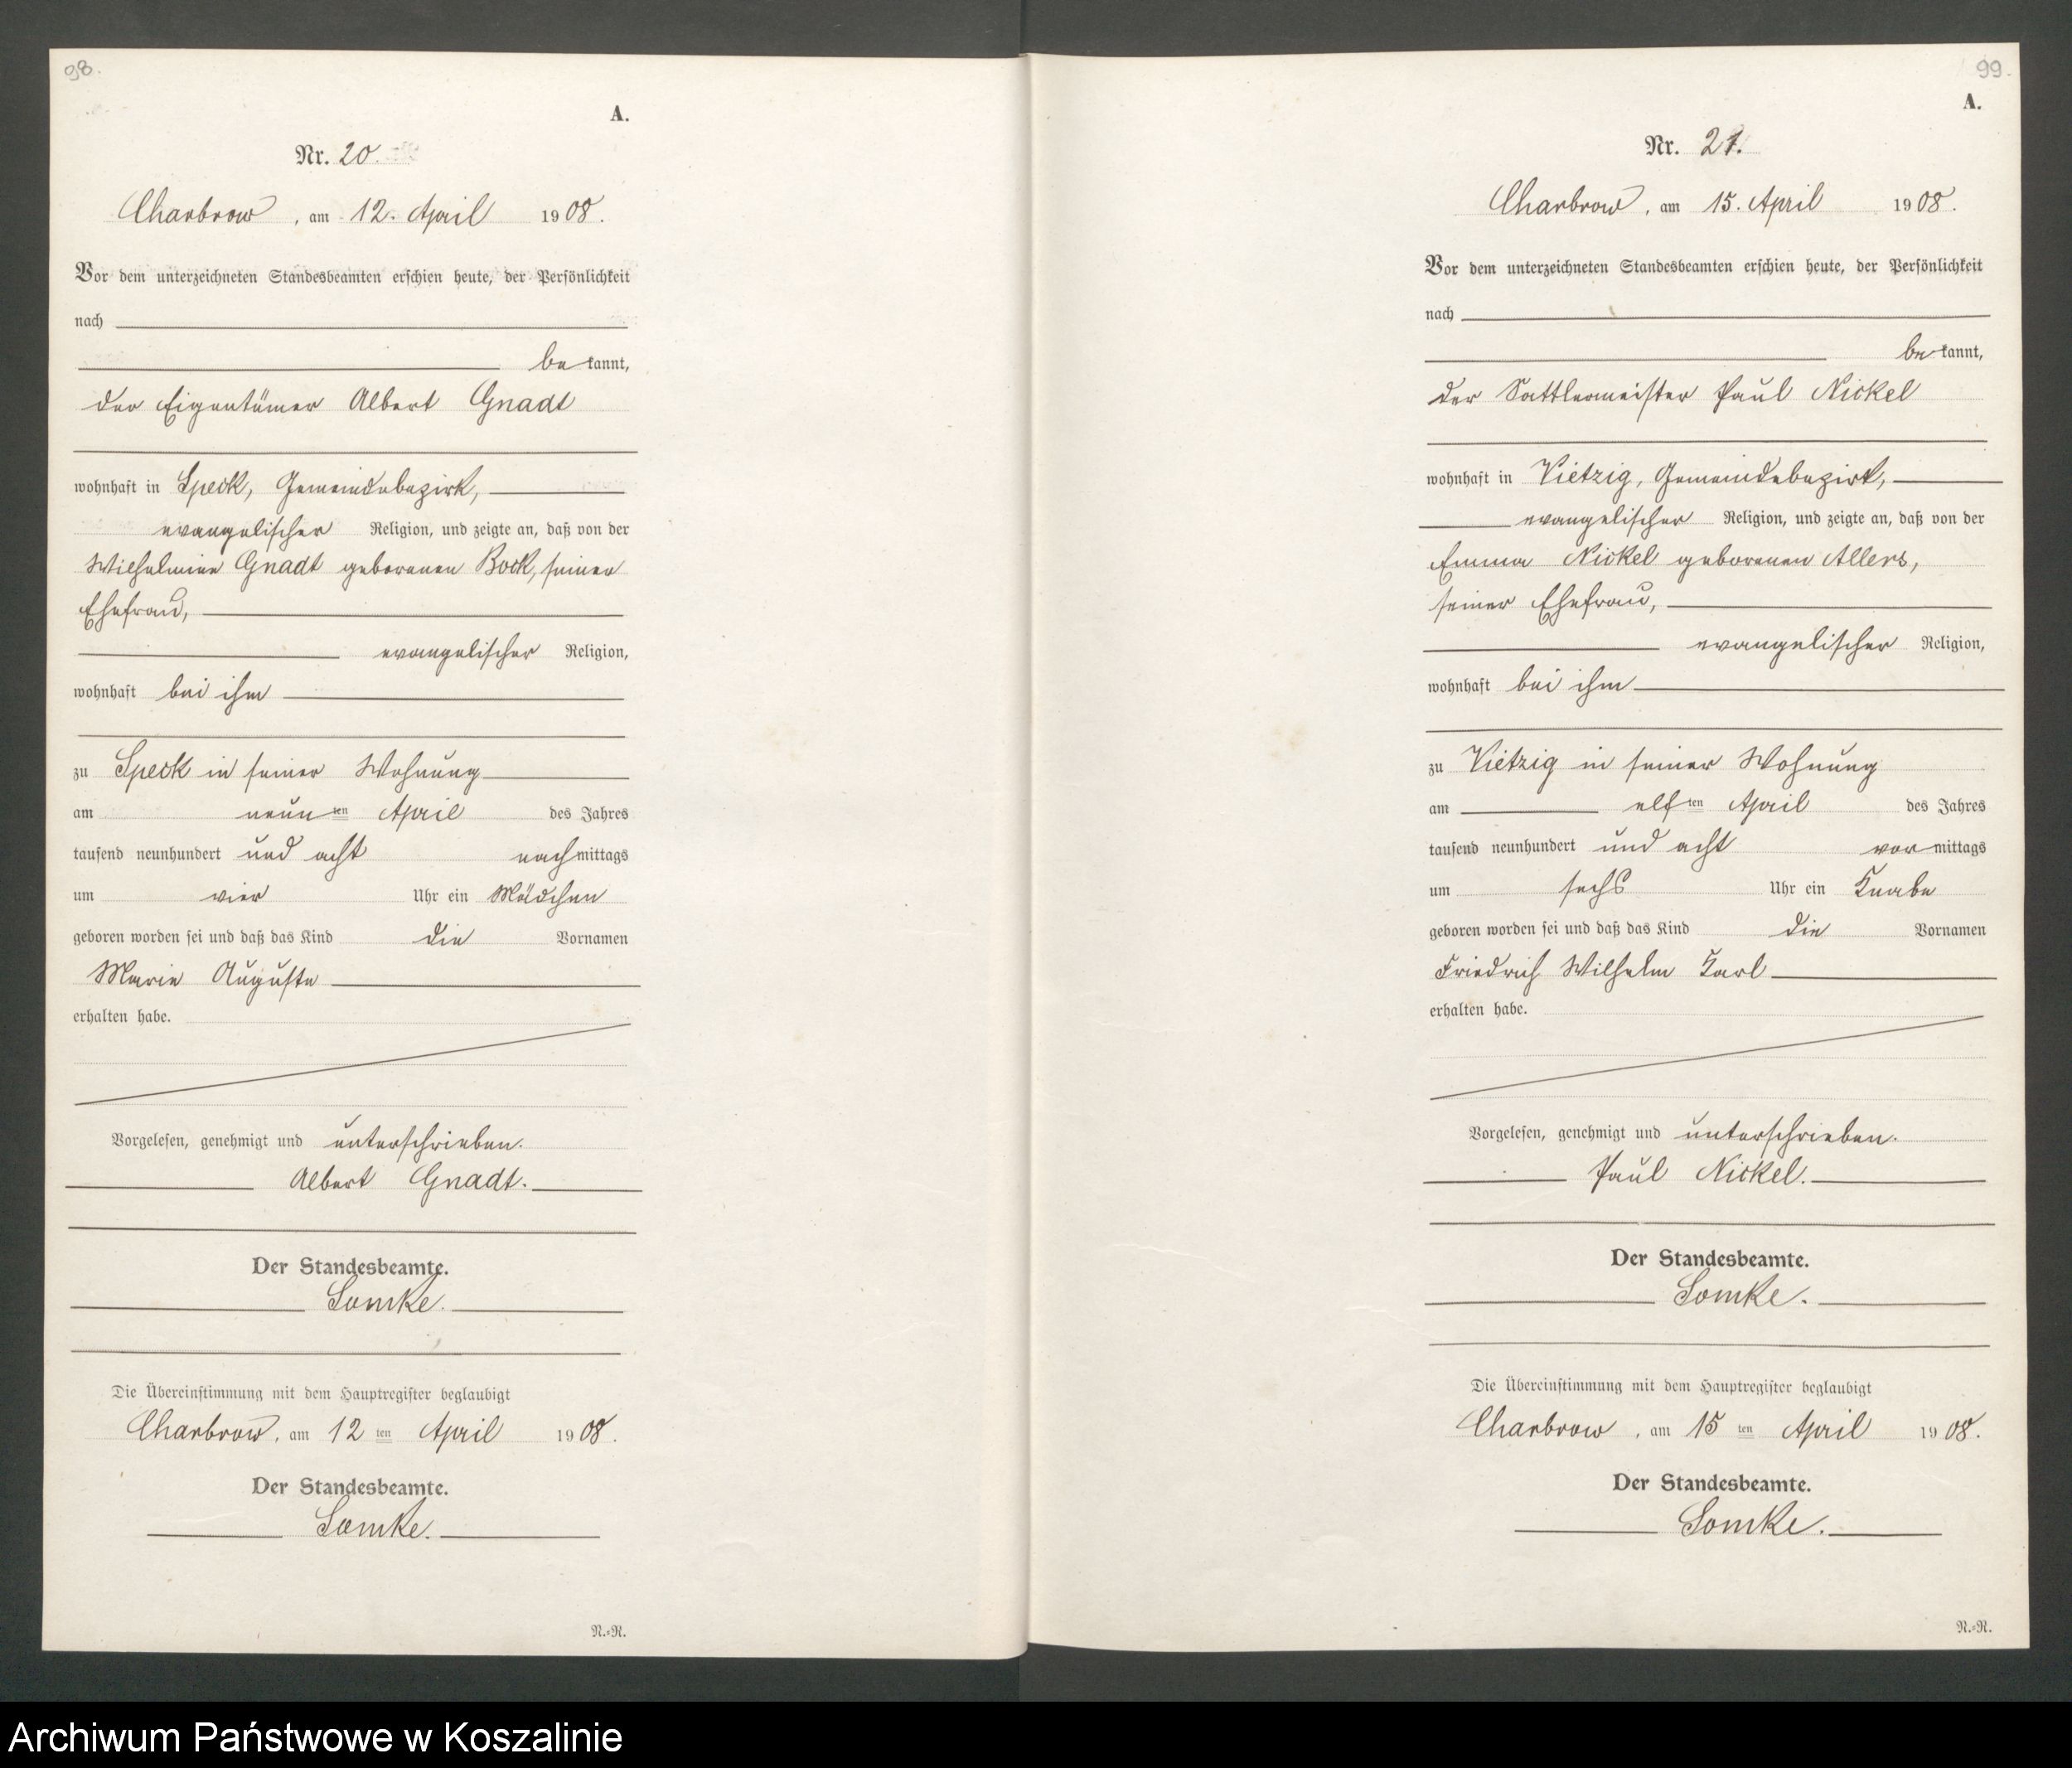 98.
A.
Nr. 20.
Charbrow, am 12. April 1908.
Vor dem unterzeichneten Standesbeamten erschien heute, der Persönlichkeit
nach
bekannt,
der Eigentümer Albert Gnadt
wohnhaft in Speck, Gemeindebezirk,
evangelischer Religion, und zeigte an, daß von der
Wilhelmine Gnadt geborenen Bock, seiner
Ehefrau,
evangelischer Religion,
wohnhaft bei ihm
zu Speck in seiner Wohnung
am neunten April des Jahres
tausend neunhundert und acht nachmittags
um vier Uhr ein Mädchen
geboren worden sei und daß das Kind die Vornamen
Marie Auguste
erhalten habe.
Vorgelesen, genehmigt und unterschrieben.
Albert Gnadt.
Der Standesbeamte.
Lomke.
Die Übereinstimmung mit dem Hauptregister beglaubigt
Charbrow, am 12ten April 1908.
Der Standesbeamte.
Lomke.
N.=R.
99.
A.
Nr. 21.
Charbrow, am 15. April 1908.
Vor dem unterzeichneten Standesbeamten erschien heute, der Persönlichkeit
nach
bekannt,
der Sattlermeister Paul Nickel
wohnhaft in Vietzig, Gemeindebezirk,
evangelischer Religion, und zeigte an, daß von der
Emma Nickel geborenen Allers,
seiner Ehefrau,
evangelischer Religion,
wohnhaft bei ihm
zu Vietzig in seiner Wohnung
am elften April des Jahres
tausend neunhundert und acht vormittags
um sechs Uhr ein Knabe
geboren worden sei und daß das Kind die Vornamen
Friedrich Wilhelm Karl
erhalten habe.
Vorgelesen, genehmigt und unterschrieben.
Paul Nickel.
Der Standesbeamte.
Lomke.
Die Übereinstimmung mit dem Hauptregister beglaubigt
Charbrow, am 15ten April 1908.
Der Standesbeamte.
Lomke.
N.=R.
Archiwum Państwowe w Koszalinie